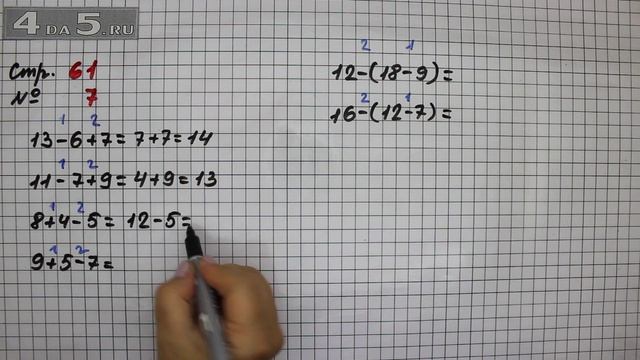 4 ДА 5.RU
Стр. 61
№ 7
1 2
13-6+7=7+7=14
1 2
11-7+9=4+9=13
1 2
8+4-5= 12-5=
1 2
9+5-7=
2 1
12-(18-9)=
2 1
16-(12-7)=